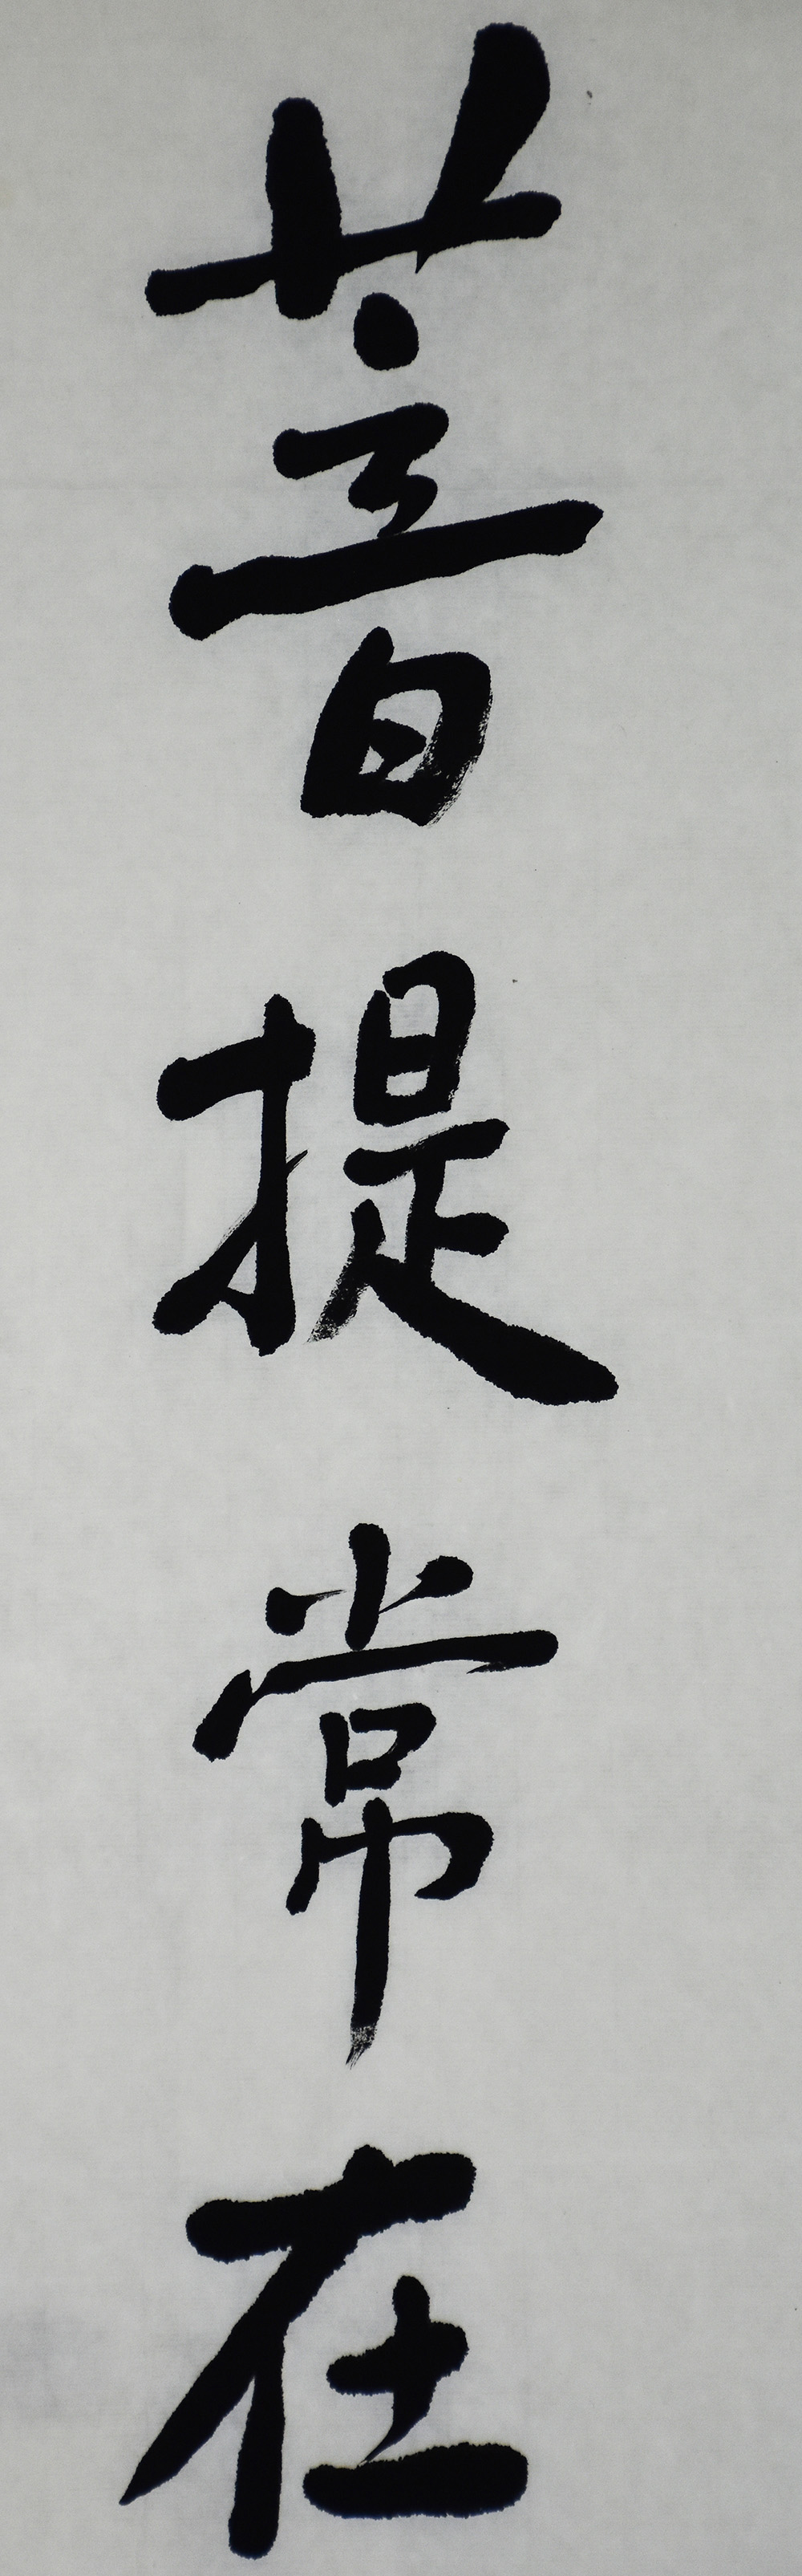 菩提常在